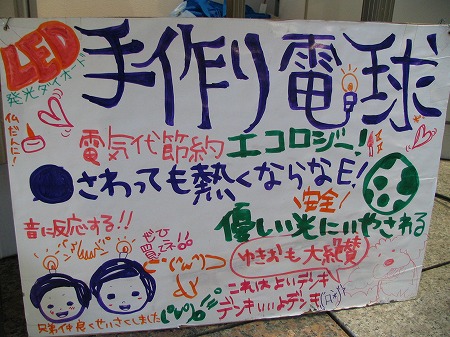 LED
発光ダイオード
手作り電球
電気代節約
エコロジー!
さわっても熱くならなE!
安全!
音に反応する!!
優しい光にいやされる
ぜひ
買ってネ!!
ゆきおも大絶賛
これはよいデンキ
デンキいいよデンキ
兄弟仲良くせいさくしました